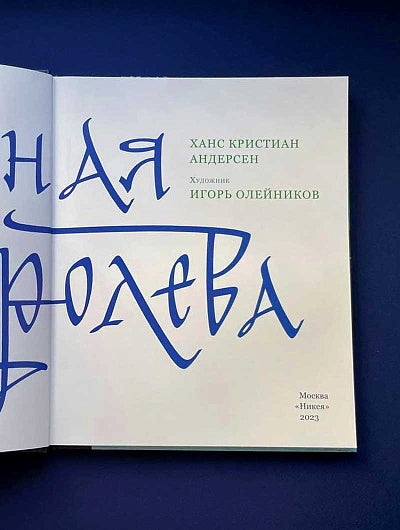 ная
ролева
ХАНС КРИСТИАН
АНДЕРСЕН
Художник
ИГОРЬ ОЛЕЙНИКОВ
Москва
«Никея»
2023